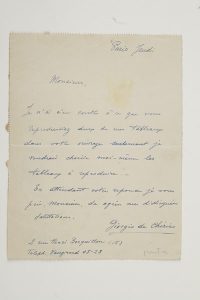 Paris Jeudi
Monsieur,
Je n'ai rien contre à ce que vous
reproduisiez deux de mes tableaux
dans votre ouvrage seulement je
voudrais choisir moi-même les
tableaux à reproduire.
En attendant votre réponse je vous
prie, Monsieur, de agréer mes distinguées
salutations.
Giorgio de Chirico
Téléph. Vaugirard 08-28